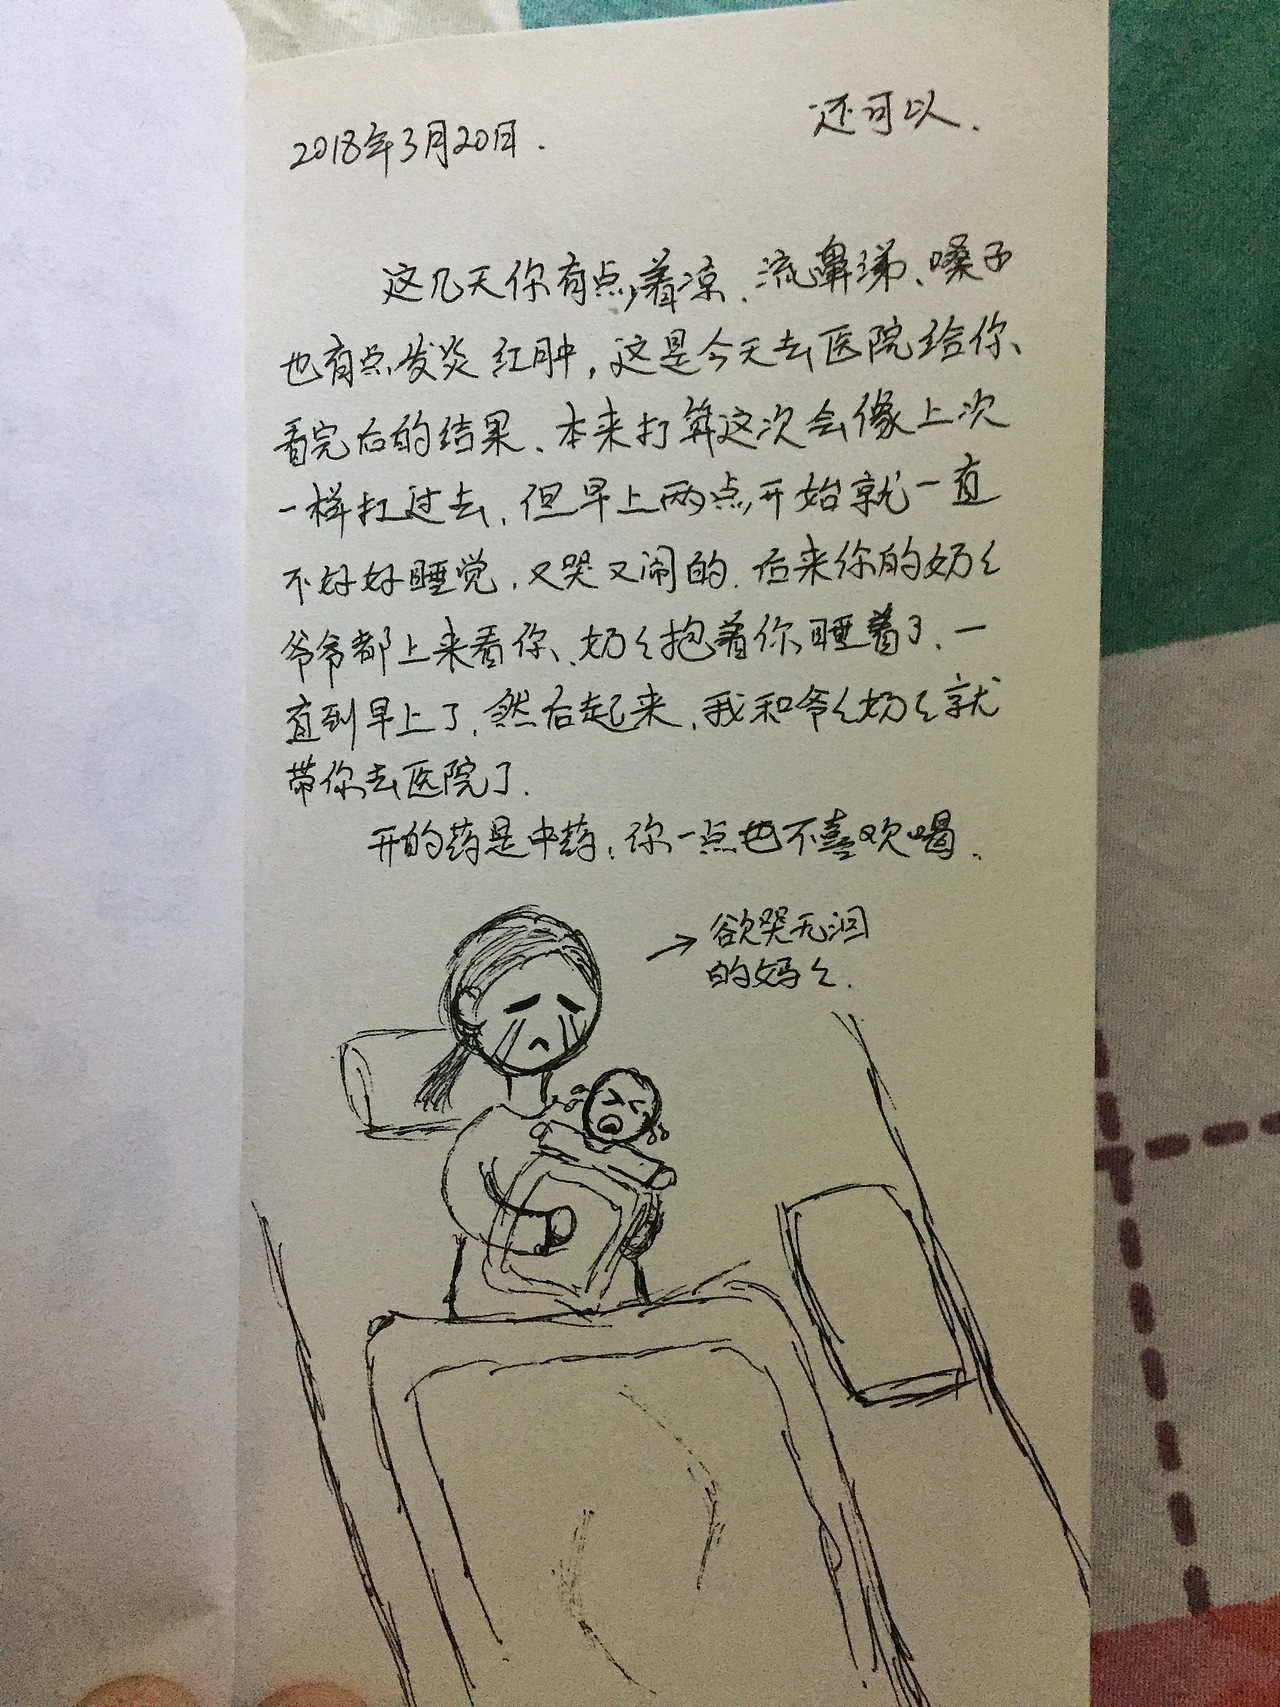 2018年3月20日. 还可以.
这几天你有点着凉、流鼻涕、嗓子
也有点发炎红肿,这是今天去医院给你
看完后的结果、本来打算这次会像上次
一样扛过去,但早上两点开始就一直
不好好睡觉,又哭又闹的.后来你的奶々
爷爷都上来看你、奶々抱着你睡着了、一
直到早上了,然后起来,我和爷々奶々就
带你去医院了.
开的药是中药,你一点也不喜欢喝.
→欲哭无泪
的妈々.